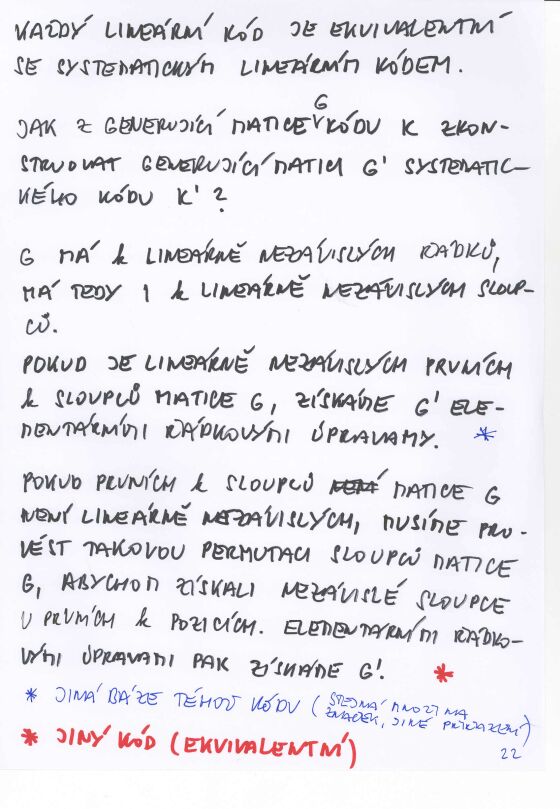 KAŽDÝ LINEÁRNÍ KÓD JE EKVIVALENTNÍ
SE SYSTEMATICKÝM LINEÁRNÍM KÓDEM.
JAK Z GENERUJÍCÍ MATICE G KÓDU K ZKON-
STRUOVAT GENERUJÍCÍ MATICI G' SYSTEMATIC-
KÉHO KÓDU K'?
G MÁ k LINEÁRNĚ NEZÁVISLÝCH ŘÁDKŮ,
MÁ TEDY I k LINEÁRNĚ NEZÁVISLÝCH SLOUP-
CŮ.
POKUD JE LINEÁRNĚ NEZÁVISLÝCH PRVNÍCH
k SLOUPCŮ MATICE G, ZÍSKÁME G' ELE-
MENTÁRNÍMI ŘÁDKOVÝMI ÚPRAVAMY. *
POKUD PRVNÍCH k SLOUPCŮ NENÍ MATICE G
NENÍ LINEÁRNĚ NEZÁVISLÝCH, MUSÍME PRO-
VÉST TAKOVOU PERMUTACI SLOUPCŮ MATICE
G, ABYCHOM ZÍSKALI NEZÁVISLÉ SLOUPCE
V PRVNÍCH k POZICÍCH. ELEMENTÁRNÍMI ŘÁDKO-
VÝMI ÚPRAVAMI PAK ZÍSKÁME G'. *
* JINÁ BÁZE TÉHOŽ KÓDU (STEJNÁ MNOŽINA
ZNAČEK, JINÉ PŘIŘAZENÍ)
* JINÝ KÓD (EKVIVALENTNÍ)
22